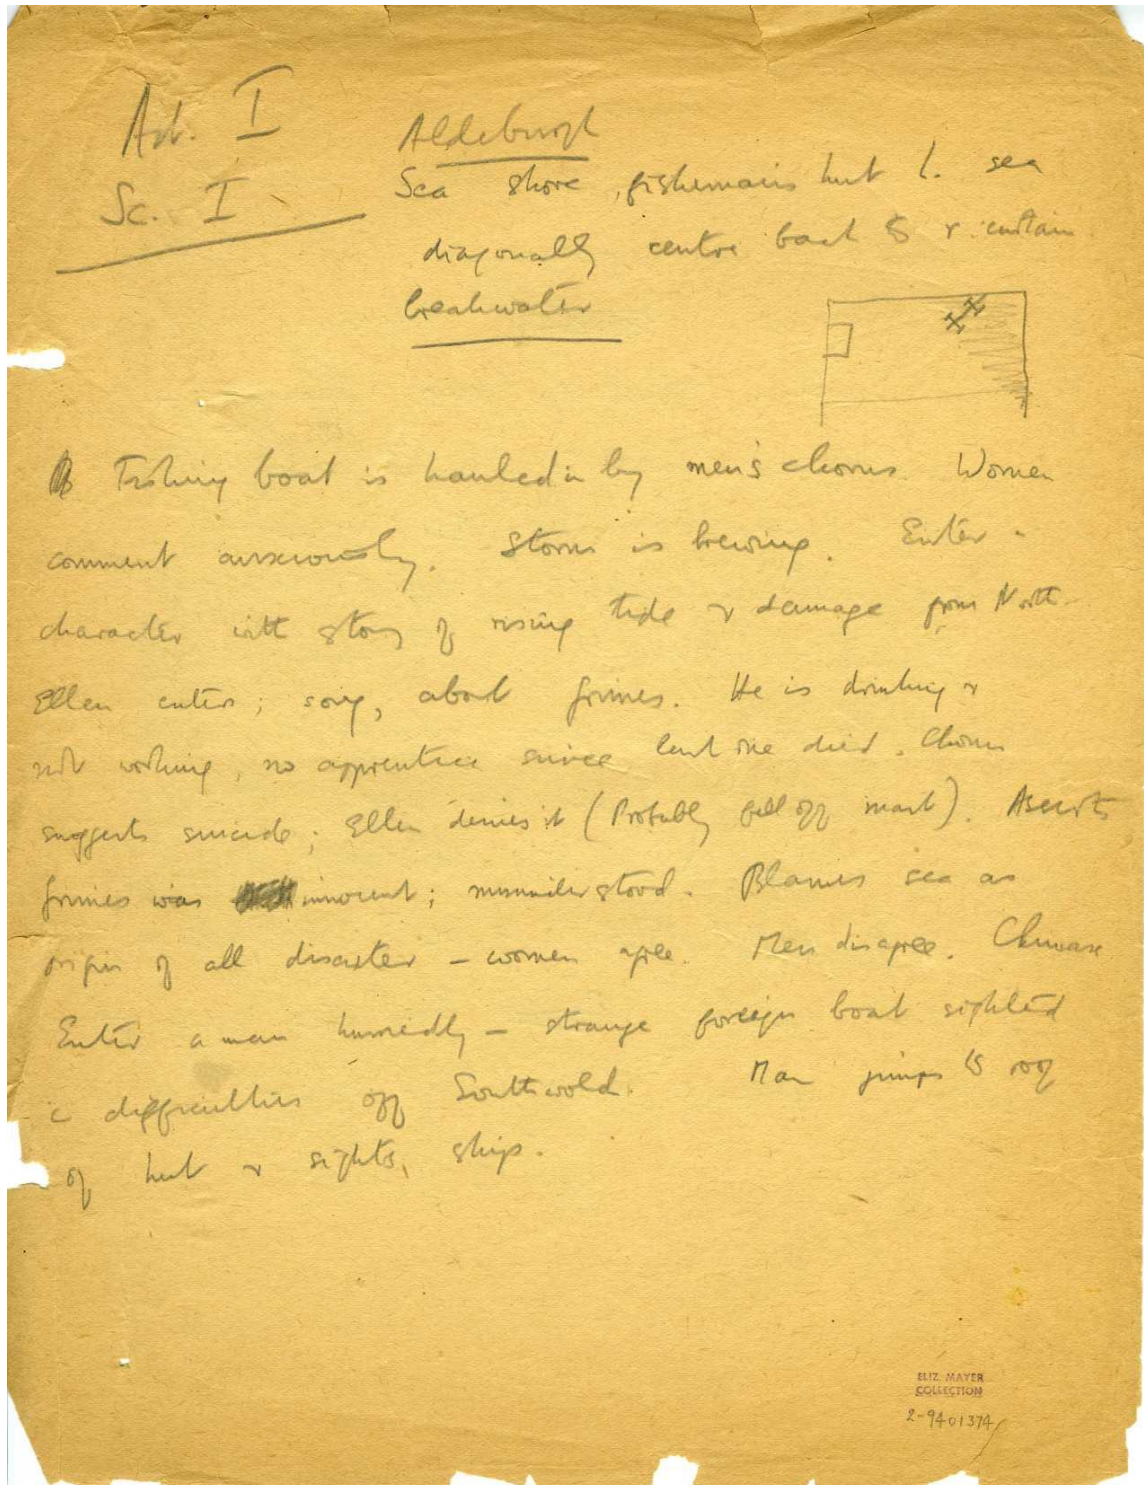 Act. I
Sc. I
Aldeburgh
Sea shore, fisherman's hut l. sea
diagonally centre back to r. curtain.
breakwater
Fishing boat is hauled in by men's chorus. Women
comment anxiously. Storm is brewing. Enter a
character with story of rising tide & damage from North
Ellen enters; song, about Grimes. He is drinking &
not working, no apprentice since last one died. Chorus
suggests suicide; Ellen denies it (Probably fell off mast). Asserts
Grimes was innocent; misunderstood. Blames sea as
origin of all disaster – women agree. Men disagree.
Enter a man hurriedly – strange foreign boat sighted
in difficulties off Southwold. Man jumps to roof
of hut & sights, ship.
ELIZ. MAYER
COLLECTION
2-9401374